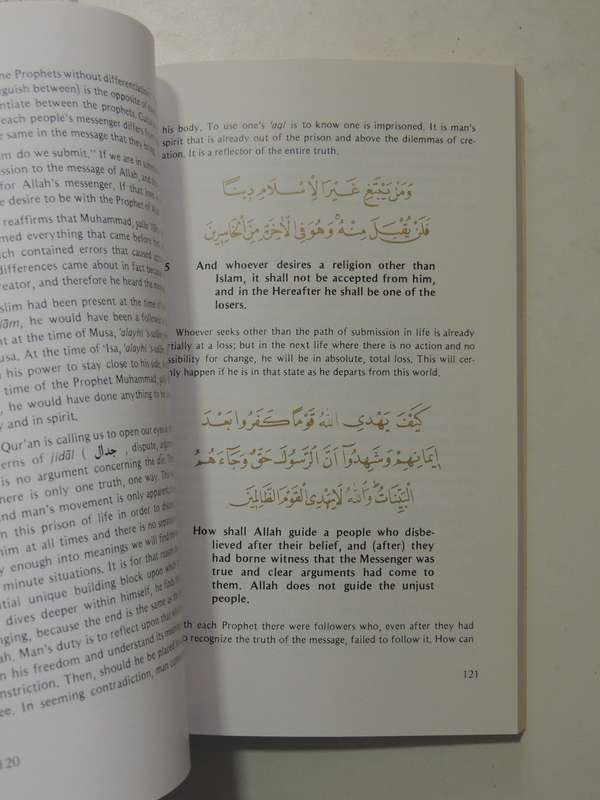 ne Prophets without differentiation
guish between) is the opposite of
entiate between the prophets.
each people's messenger differs from
e same in the message that they
m do we submit." If we are in
ission to the message of Allah, and
for Allah's messenger. If that love
e desire to be with the Prophet of
reaffirms that Muhammad,
med everything that came before
ich contained errors that caused
differences came about in fact because
reator, and therefore he heard the
slim had been present at the time of
he would have been a
nt at the time of Musa, 'alayhi 's-salām,
usa. At the time of 'Isa, 'alayhi 's-salām,
n his power to stay close to his side,
time of the Prophet Muhammad,
, he would have done anything to be
y and in spirit.
Qur'an is calling us to open our eyes
erns of jidāl ( جدال , dispute,
is no argument concerning the
here is only one truth, one way.
and man's movement is only
n this prison of life in order to
him at all times and there is no
y enough into meanings we will find
minute situations. It is for that reason
ntial unique building block upon which
dives deeper within himself, he finds
nging, because the end is the same as the
ah. Man's duty is to reflect upon that
n his freedom and understand its
nstriction. Then, should he be placed
ee. In seeming contradiction, man
120
his body. To use one's 'aql is to know one is imprisoned. It is man's
spirit that is already out of the prison and above the dilemmas of cre-
ation. It is a reflector of the entire truth.
وَمَن يَبْتَغِ غَيْرَ الْإِسْلَامِ دِينًا
فَلَن يُقْبَلَ مِنْهُ وَهُوَ فِي الْآخِرَةِ مِنَ الْخَاسِرِينَ
5 And whoever desires a religion other than
Islam, it shall not be accepted from him,
and in the Hereafter he shall be one of the
losers.
Whoever seeks other than the path of submission in life is already
artially at a loss; but in the next life where there is no action and no
ssibility for change, he will be in absolute, total loss. This will cer-
nly happen if he is in that state as he departs from this world.
كَيْفَ يَهْدِي اللَّهُ قَوْمًا كَفَرُوا بَعْدَ
إِيمَانِهِمْ وَشَهِدُوا أَنَّ الرَّسُولَ حَقٌّ وَجَاءَهُمُ
الْبَيِّنَاتُ وَاللَّهُ لَا يَهْدِي الْقَوْمَ الظَّالِمِينَ
How shall Allah guide a people who disbe-
lieved after their belief, and (after) they
had borne witness that the Messenger was
true and clear arguments had come to
them. Allah does not guide the unjust
people.
th each Prophet there were followers who, even after they had
to recognize the truth of the message, failed to follow it. How can
121